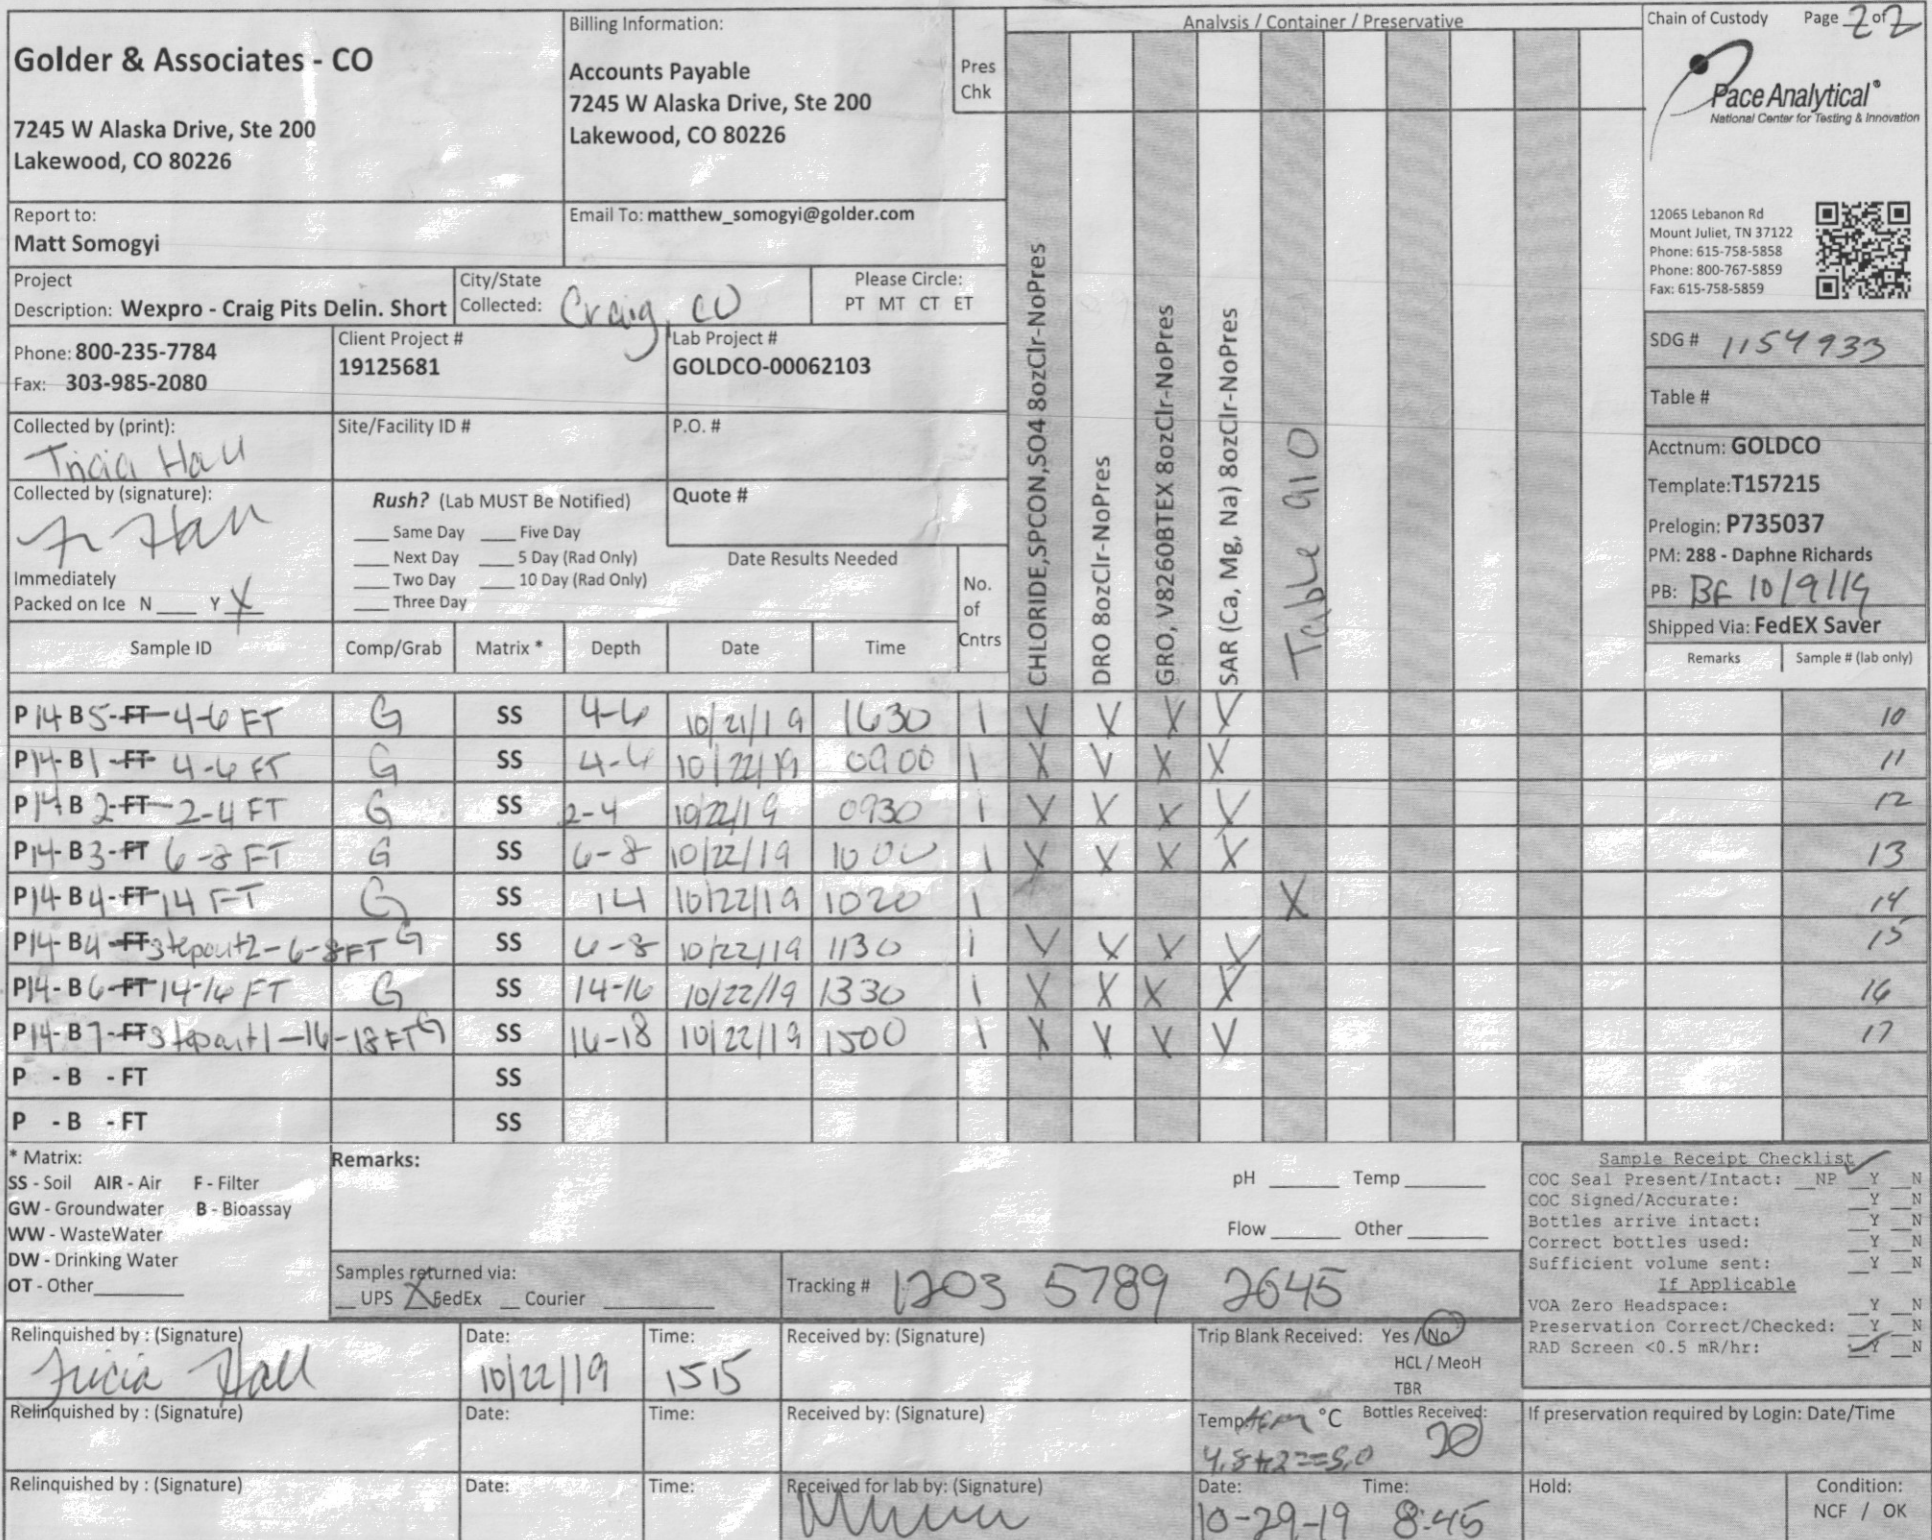 Golder & Associates - CO
7245 W Alaska Drive, Ste 200
Lakewood, CO 80226
Billing Information:
Accounts Payable
7245 W Alaska Drive, Ste 200
Lakewood, CO 80226
Pres
Chk
Analysis / Container / Preservative
Chain of Custody Page 2 of 2
Pace Analytical®
National Center for Testing & Innovation
12065 Lebanon Rd
Mount Juliet, TN 37122
Phone: 615-758-5858
Phone: 800-767-5859
Fax: 615-758-5859
Report to:
Matt Somogyi
Email To: matthew_somogyi@golder.com
Project
Description: Wexpro - Craig Pits Delin. Short
City/State
Collected: Craig, CO
Please Circle:
PT MT CT ET
Phone: 800-235-7784
Fax: 303-985-2080
Client Project #
19125681
Lab Project #
GOLDCO-00062103
Collected by (print):
Tricia Hall
Site/Facility ID #
P.O. #
Collected by (signature):
Rush? (Lab MUST Be Notified)
___ Same Day ___ Five Day
___ Next Day ___ 5 Day (Rad Only)
___ Two Day ___ 10 Day (Rad Only)
___ Three Day
Quote #
Date Results Needed
Immediately
Packed on Ice N ___ Y X
No.
of
Cntrs
CHLORIDE,SPCON,SO4 8ozClr-NoPres
DRO 8ozClr-NoPres
GRO, V8260BTEX 8ozClr-NoPres
SAR (Ca, Mg, Na) 8ozClr-NoPres
Table 910
SDG # 1154933
Table #
Acctnum: GOLDCO
Template:T157215
Prelogin: P735037
PM: 288 - Daphne Richards
PB: BF 10/9/19
Shipped Via: FedEX Saver
Remarks Sample # (lab only)
Sample ID Comp/Grab Matrix * Depth Date Time
P14 B5-FT-4-6 FT G SS 4-6 10/21/19 1630 1 X X X X 10
P14-B1-FT 4-6 FT G SS 4-6 10/22/19 0900 1 X X X X 11
P14-B2-FT-2-4 FT G SS 2-4 10/22/19 0930 1 X X X X 12
P14-B3-FT 6-8 FT G SS 6-8 10/22/19 1000 1 X X X X 13
P14-B4-FT 14 FT G SS 14 10/22/19 1020 1 X 14
P14-B4-FT stepout2-6-8FT G SS 6-8 10/22/19 1130 1 X X X X 15
P14-B6-FT 14-16 FT G SS 14-16 10/22/19 1330 1 X X X X 16
P14-B7-FT stepout1-16-18FT G SS 16-18 10/22/19 1500 1 X X X X 17
P - B - FT SS
P - B - FT SS
* Matrix:
SS - Soil AIR - Air F - Filter
GW - Groundwater B - Bioassay
WW - WasteWater
DW - Drinking Water
OT - Other
Remarks:
pH ___ Temp ___
Flow ___ Other ___
Samples returned via:
__ UPS X FedEx __ Courier
Tracking # 1203 5789 2645
Sample Receipt Checklist
COC Seal Present/Intact: __NP __Y __N
COC Signed/Accurate: __Y __N
Bottles arrive intact: __Y __N
Correct bottles used: __Y __N
Sufficient volume sent: __Y __N
If Applicable
VOA Zero Headspace: __Y __N
Preservation Correct/Checked: __Y __N
RAD Screen <0.5 mR/hr: __Y __N
Relinquished by : (Signature)
Tricia Hall
Date:
10/22/19
Time:
1515
Received by: (Signature)
Trip Blank Received: Yes / No
HCL / MeoH
TBR
Relinquished by : (Signature)
Date:
Time:
Received by: (Signature)
Temp: °C Bottles Received:
4.8+.2=5.0 20
If preservation required by Login: Date/Time
Relinquished by : (Signature)
Date:
Time:
Received for lab by: (Signature)
Date:
10-29-19
Time:
8:45
Hold:
Condition:
NCF / OK